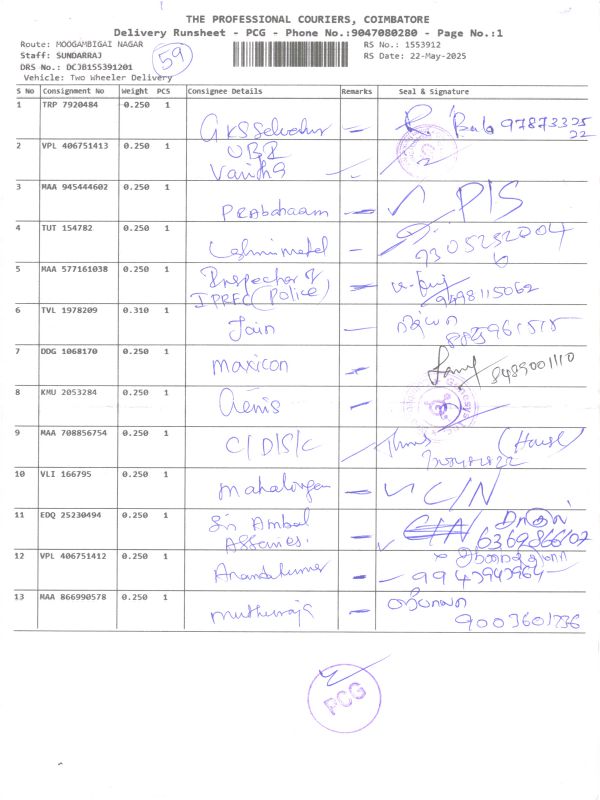 THE PROFESSIONAL COURIERS, COIMBATORE
Delivery Runsheet - PCG - Phone No.:9047080280 - Page No.:1
Route: MOOGAMBIGAI NAGAR 59 RS No.: 1553912
Staff: SUNDARRAJ RS Date: 22-May-2025
DRS No.: DCJB155391201
Vehicle: Two Wheeler Delivery
S No Consignment No Weight PCS Consignee Details Remarks Seal & Signature
1 TRP 7920484 0.250 1 GKS Selvakumar R. Bala 97873325
22
2 VPL 406751413 0.250 1 UBR
Vanitha
3 MAA 945444602 0.250 1 Prabahaam P/S
4 TUT 154782 0.250 1 Lashmi metal 7305232004
5 MAA 577161038 0.250 1 Inspector of
IPREC (Police) 9498115062
6 TVL 1978209 0.310 1 Join 8825961515
7 DDG 1068170 0.250 1 maxicon 8489001110
8 KMU 2053284 0.250 1 Aenis
9 MAA 708856754 0.250 1 C/D/S/C (House)
10 VLI 166795 0.250 1 mahalingam C/N
11 EDQ 25230494 0.250 1 Sri Ambal
Assories. C/N 6369866102
12 VPL 406751412 0.250 1 Anandakumar 9943943964
13 MAA 866990578 0.250 1 muthuraja 9003601736
PCG